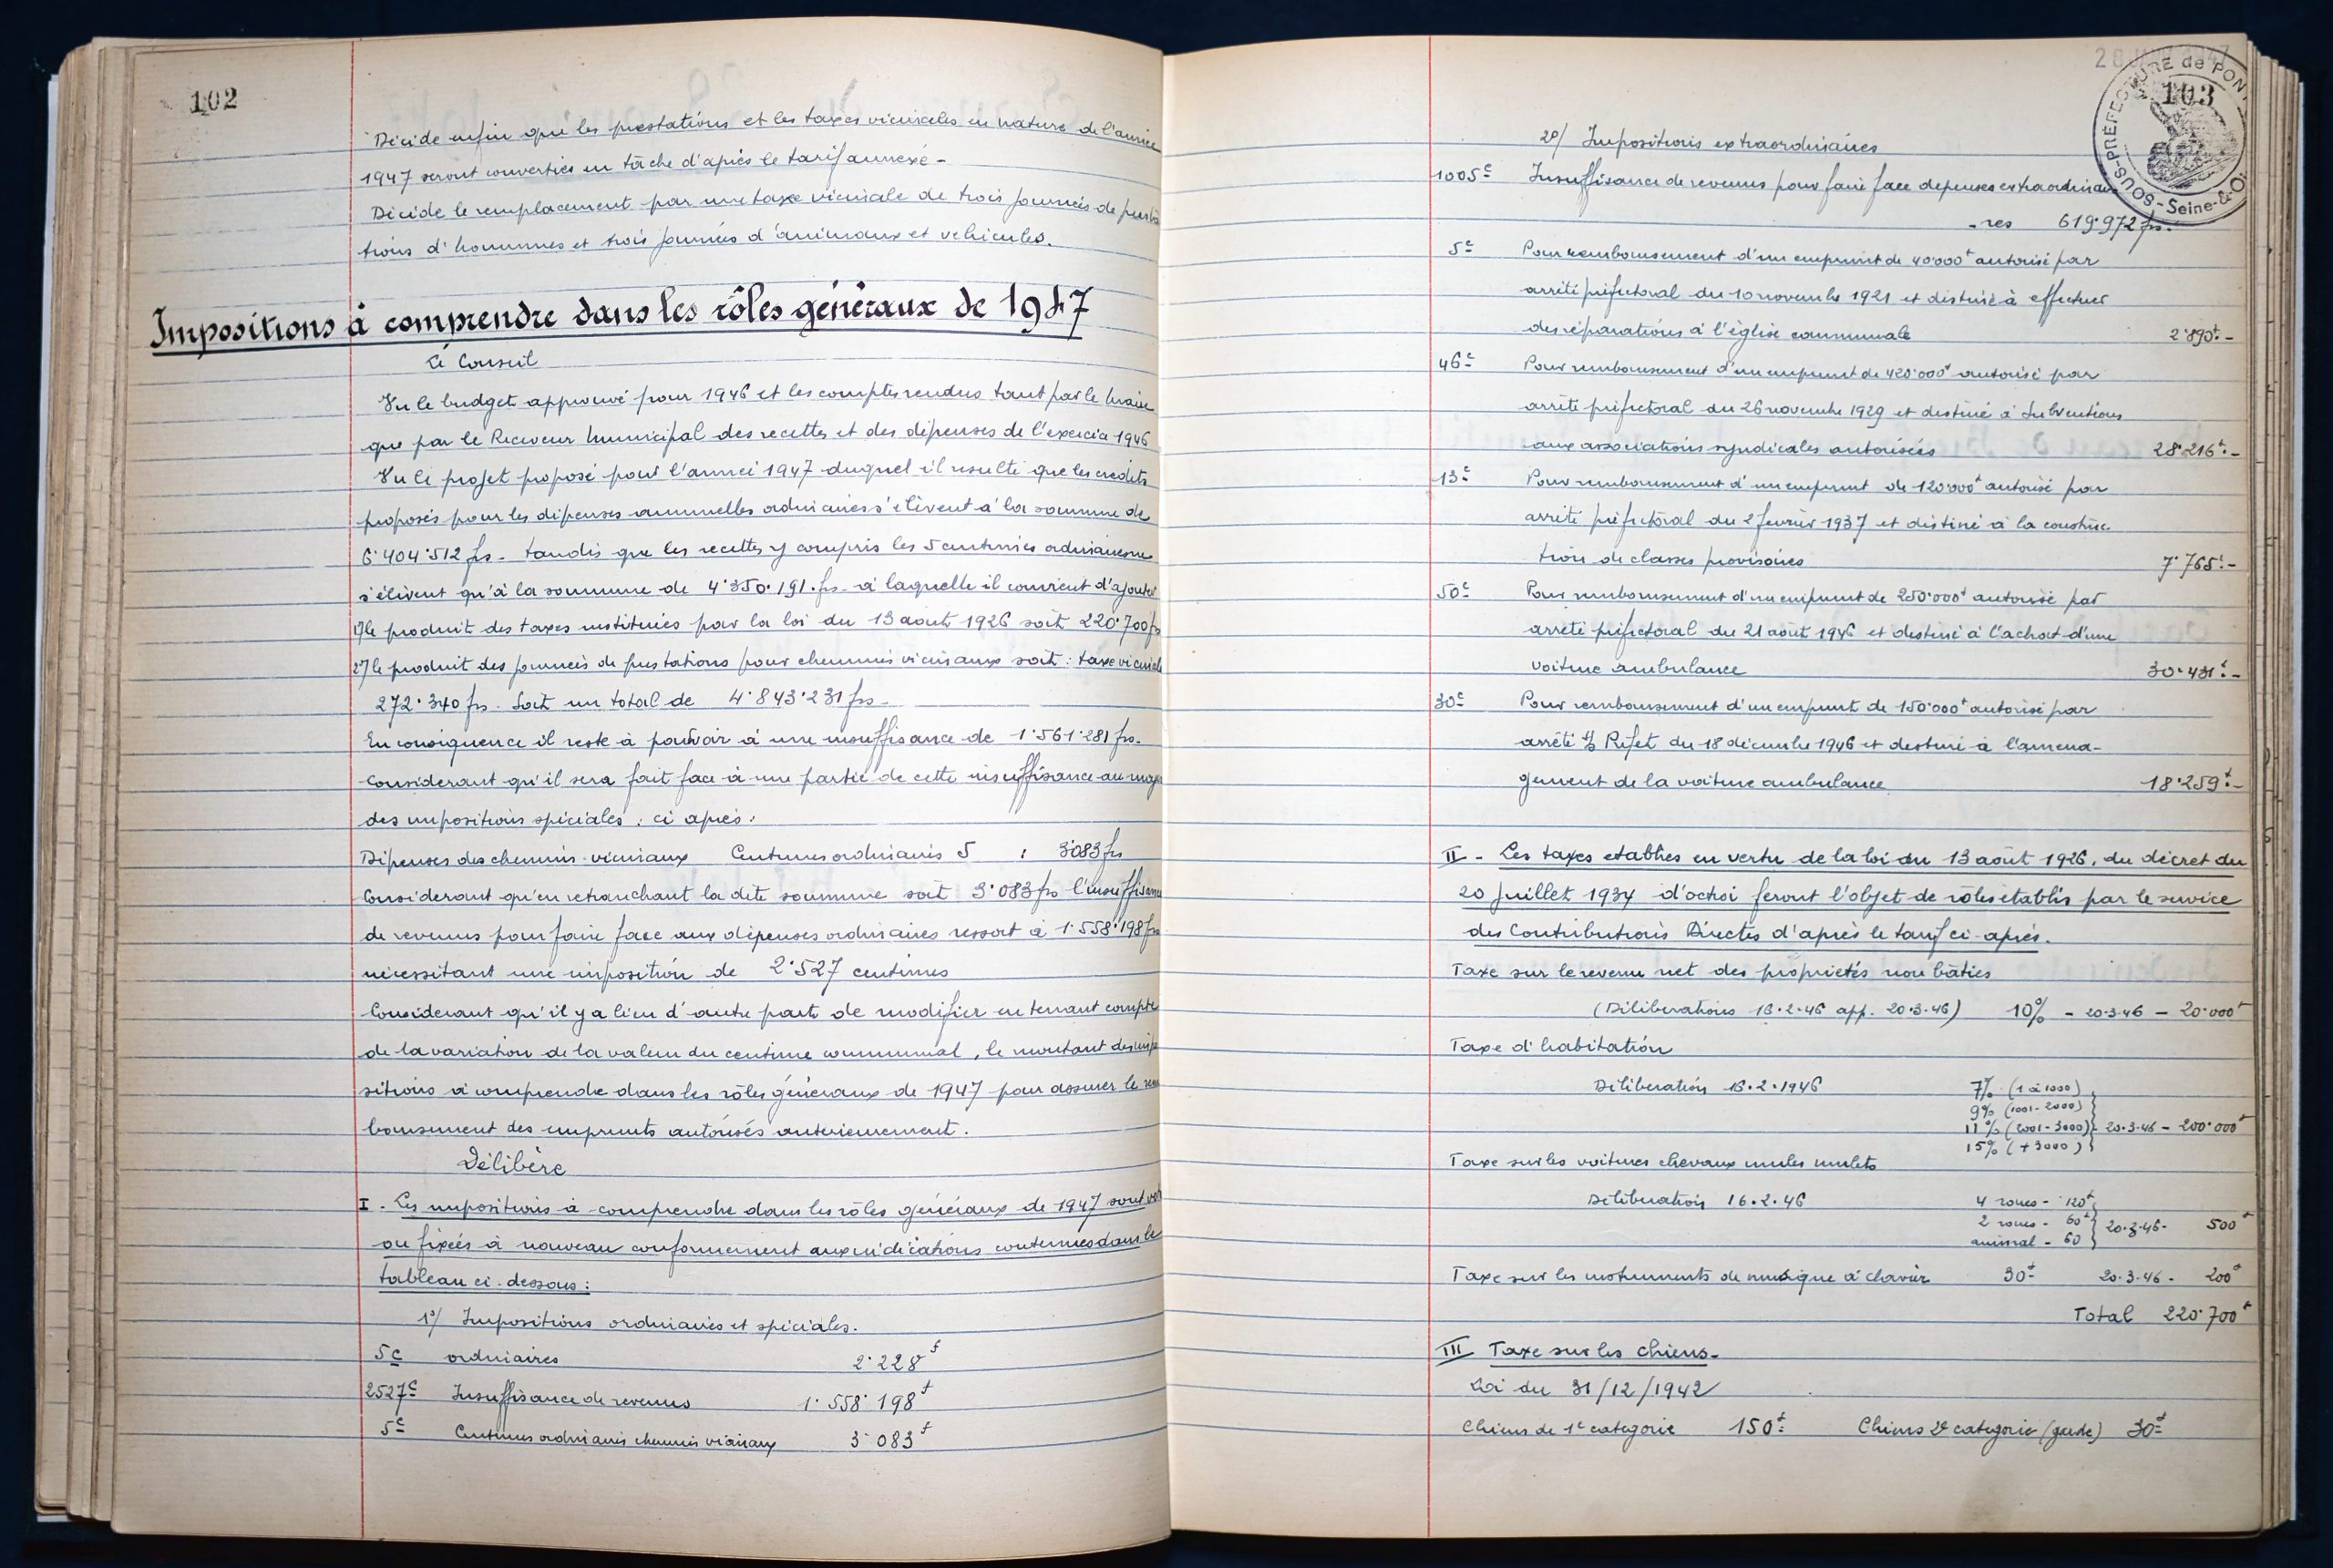 102
Décide enfin que les prestations et les taxes vicinales en nature de l'année
1947 seront converties en tâche d'après le tarif annexé -
Décide le remplacement par une taxe vicinale de trois journées de presta
tions d'hommes et trois journées d'animaux et vehicules.
Impositions à comprendre dans les rôles généraux de 1947
Le Conseil
Vu le budget approuvé pour 1946 et les comptes rendus tant par le Maire
que par le Receveur Municipal des recettes et des dépenses de l'exercice 1946
Vu le projet proposé pour l'année 1947 duquel il resulte que les credits
proposés pour les dépenses annuelles ordinaires s'élèvent à la somme de
6.404.512 frs - tandis que les recettes y compris les 5 centimes ordinaires ne
s'élèvent qu'à la somme de 4.350.191. frs - à laquelle il convient d'ajouter
1°) le produit des taxes instituées par la loi du 13 août 1926 soit 220.700 frs
2°) le produit des journées de prestations pour chemins vicinaux soit : taxe vicinale
272.340 frs. Soit un total de 4.843.231 frs -
En conséquence il reste à pourvoir à une insuffisance de 1.561.281 frs.
Considerant qu'il sera fait face à une partie de cette insuffisance au moyen
des impositions spéciales : ci après :
Dépenses des chemins vicinaux Centimes ordinaires 5 : 3083 frs
Considerant qu'en retranchant la dite somme soit 3.083 frs l'insuffisance
de revenus pour faire face aux dépenses ordinaires ressort à 1.558.198 frs
nécessitant une imposition de 2.527 centimes
Considerant qu'il y a lieu d'autre part de modifier en tenant compte
de la variation de la valeur du centime communal, le montant des impo
sitions à comprendre dans les rôles généraux de 1947 pour assurer le rem
boursement des emprunts autorisés anterieurement.
Délibère
I - Les impositions à comprendre dans les rôles généraux de 1947 sont
ou fixées à nouveau conformement aux indications contenues dans le
tableau ci-dessous :
1°/ Impositions ordinaires et spéciales.
5c ordinaires 2.228 f
2527c Insuffisance de revenus 1.558.198 f
5c Centimes ordinaires chemins vicinaux 3.083 f
SOUS-PRÉFECTURE de PONT
Seine-&-O
103
2°/ Impositions extraordinaires
1005c Insuffisance de revenus pour faire face depenses extraordinai
- res 619.972 frs.
5c Pour remboursement d'un emprunt de 40.000 f autorisé par
arrêté préfectoral du 10 novembre 1921 et destiné à effectuer
des réparations à l'église communale 2.890 f -
46c Pour remboursement d'un emprunt de 420.000 f autorisé par
arrêté préfectoral du 26 novembre 1929 et destiné à Subventions
aux associations syndicales autorisées 28.216 f -
13c Pour remboursement d'un emprunt de 120.000 f autorisé par
arrêté préfectoral du 2 fevrier 1937 et destiné à la construc
tion de classes provisoires 7.765 f -
50c Pour remboursement d'un emprunt de 250.000 f autorisé par
arrêté préfectoral du 21 août 1946 et destiné à l'achat d'une
voiture ambulance 30.431 f -
30c Pour remboursement d'un emprunt de 150.000 f autorisé par
arrêté s/ Préfet du 18 décembre 1946 et destiné à l'aména-
gement de la voiture ambulance 18.259 f -
II - Les taxes etablies en vertu de la loi du 13 août 1926, du décret du
20 Juillet 1934 d'octroi feront l'objet de rôles établis par le service
des Contributions Directes d'après le tarif ci-après.
Taxe sur le revenu net des propriétés non bâties
(Délibérations 16.2.46 app. 20.3.46) 10% - 20.3.46 - 20.000 f
Taxe d'habitation
Délibération 16.2.1946 7% (1 à 1000)
9% (1001-2000)
11% (2001-3000) 20.3.46 - 200.000 f
15% (+3000)
Taxe sur les voitures chevaux mules mulets
Délibération 16.2.46 4 roues - 120 f
2 roues - 60 f 20.3.46 - 500 f
animal - 60
Taxe sur les instruments de musique à clavier 30 f 20.3.46 - 200 f
Total 220.700 f
III Taxe sur les chiens.
Loi du 31/12/1942
Chiens de 1e categorie 150 f Chiens 2e categorie (garde) 30 f